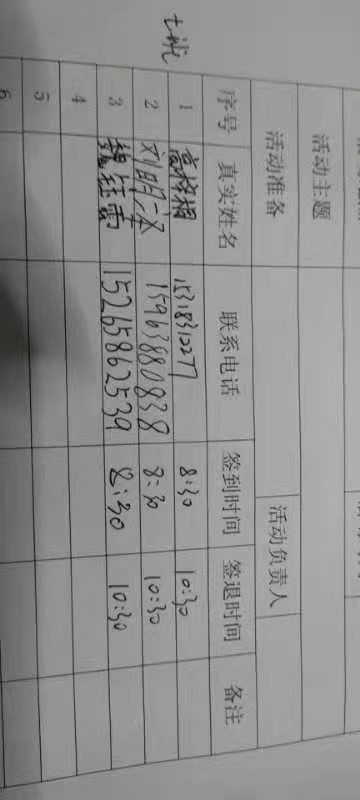 活动主题
活动准备 活动负责人
序号 真实姓名 联系电话 签到时间 签退时间 备注
七班
1 15318312277 8:30 10:30
2 刘明 15963880838 8:30 10:30
3 魏钰雷 15265862539 8:30 10:30
4
5
6